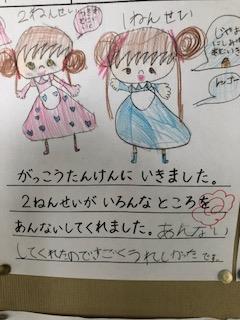 2ねんせい
1ねんせい
がっこうたんけんに いきました。
2ねんせいが いろんな ところを
あんないしてくれました。あんない
してくれたのですごくうれしかったです。